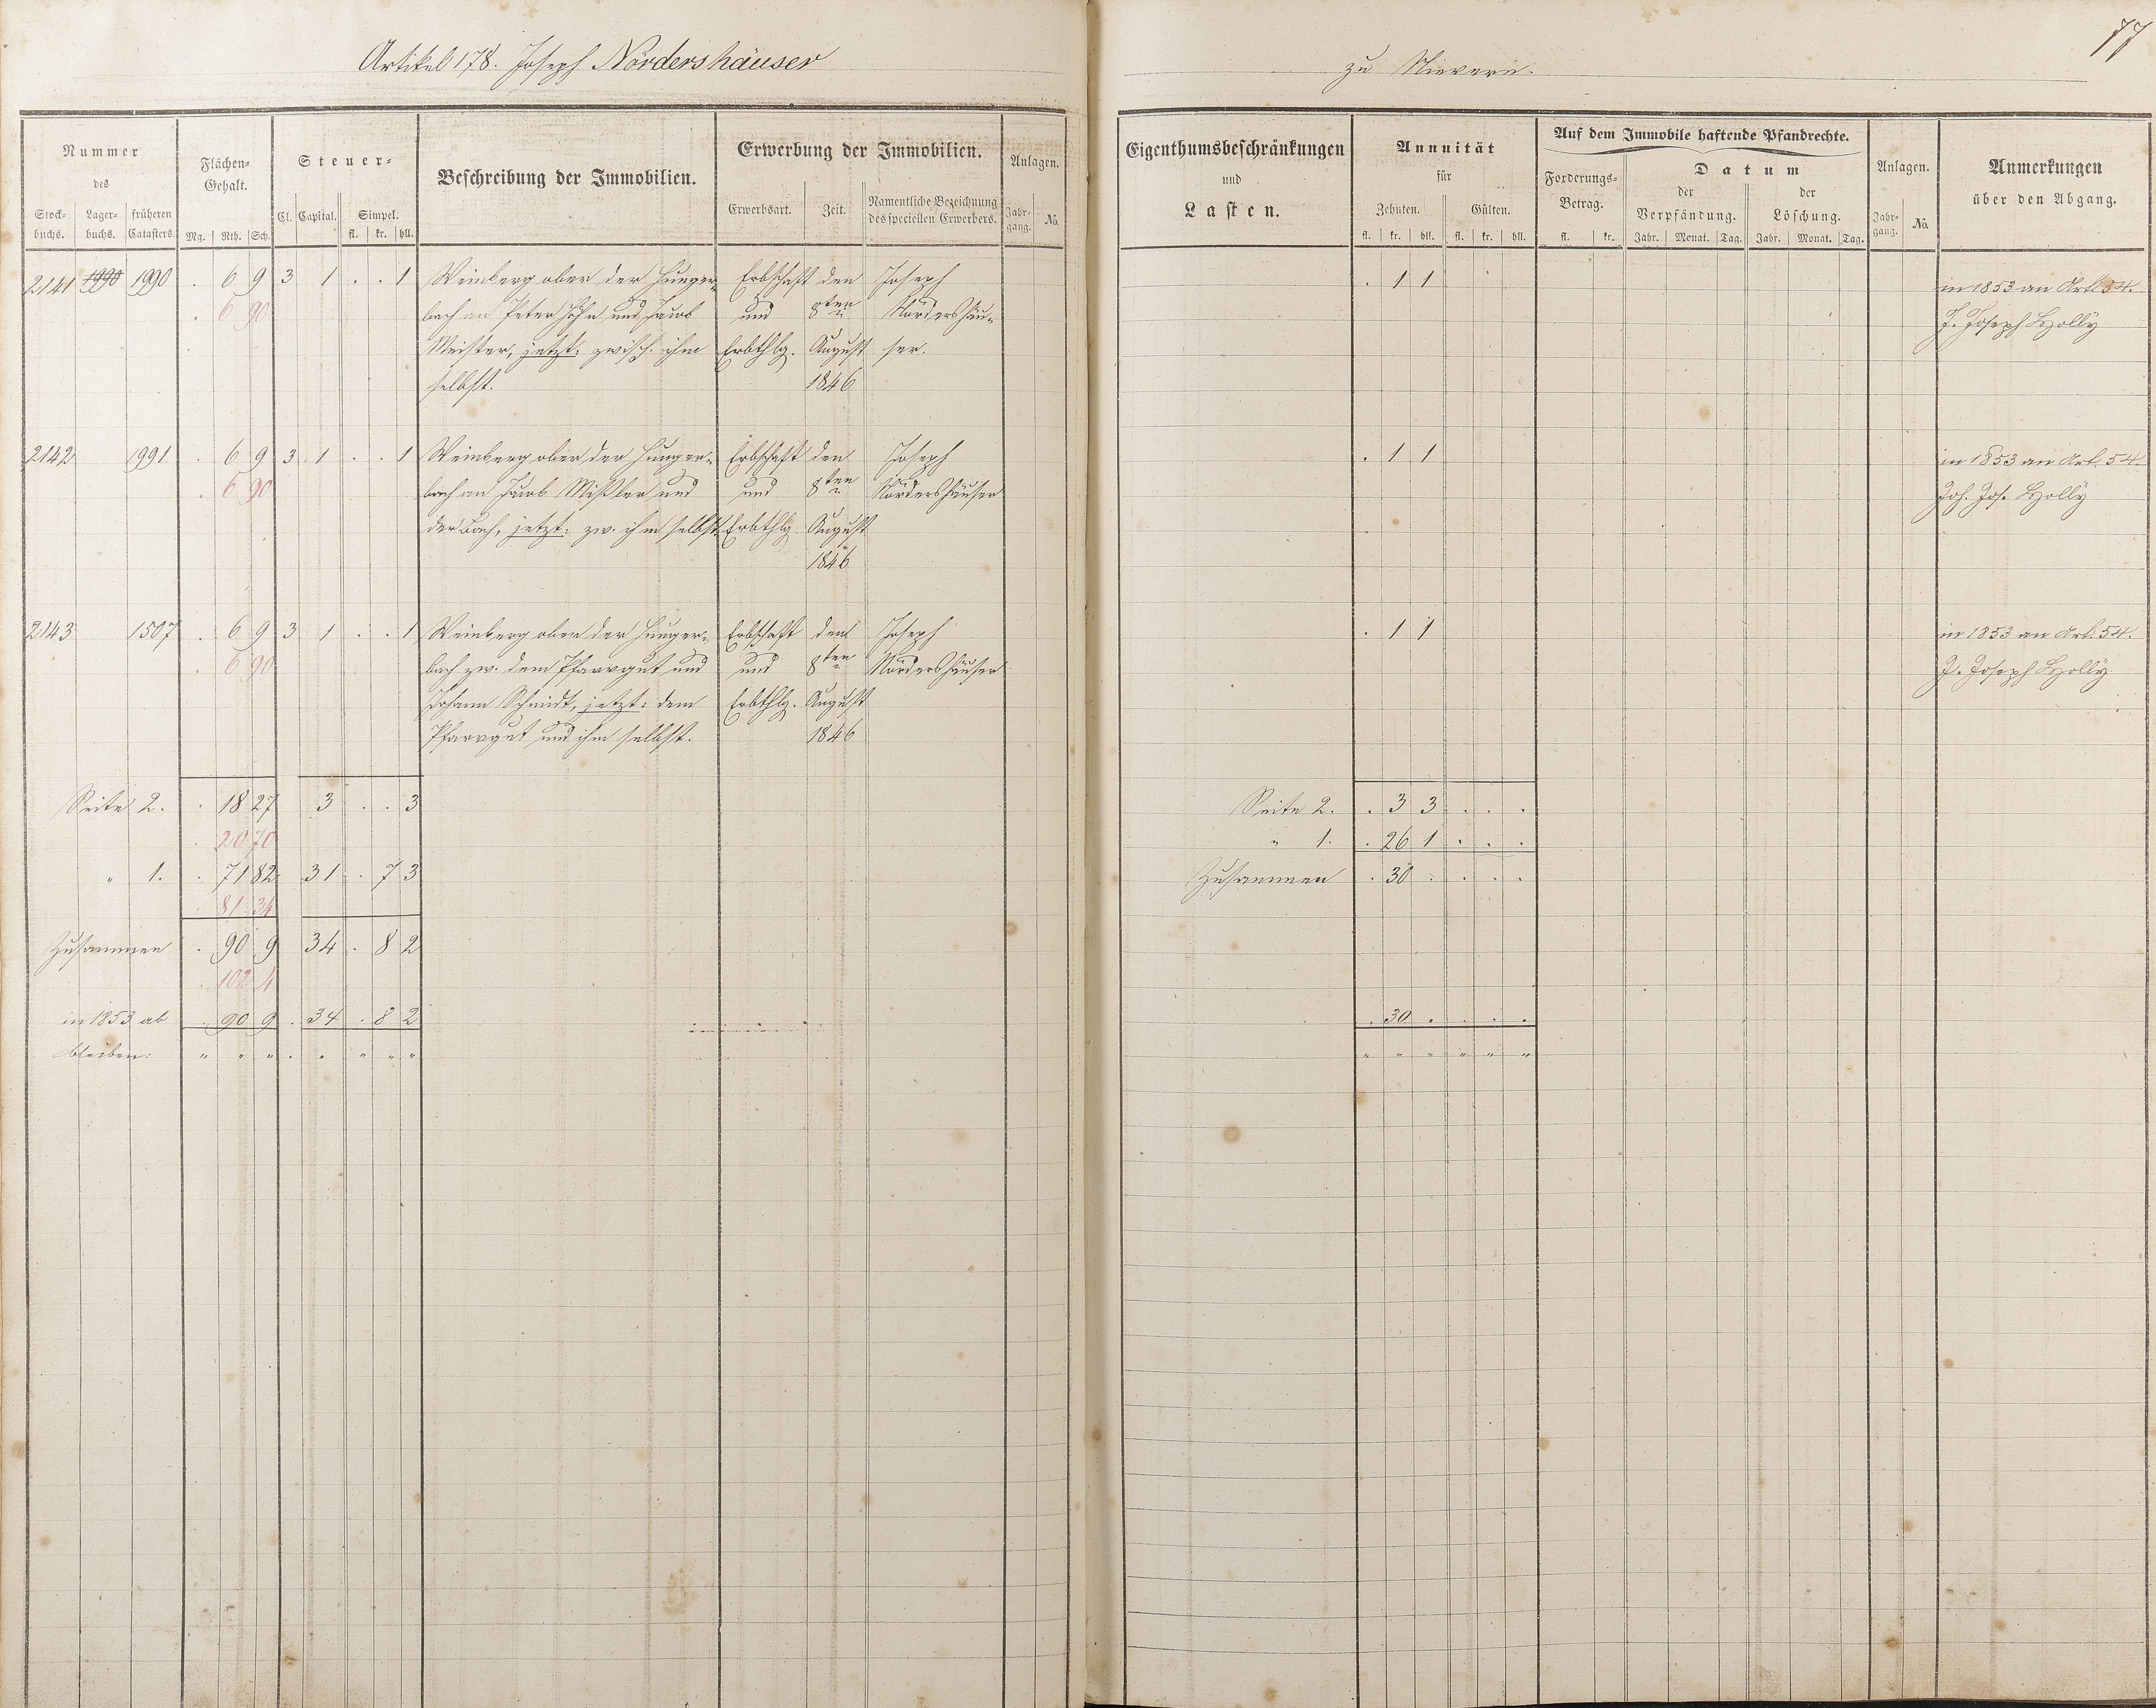 Artikel 178. Joseph Nördershäuser
zu Nievern.
77
Nummer
des
Stock-
buchs.
Lager-
buchs.
früheren
Catasters.
Flächen-
Gehalt.
Mg. Rth. Sch.
Steuer-
Cl. Capital. Simpel.
fl. kr. hll.
Beschreibung der Immobilien.
Erwerbung der Immobilien.
Erwerbsart. Zeit. Namentliche Bezeichnung
des speciellen Erwerbers.
Anlagen.
Jahr-
gang. No.
Eigenthumsbeschränkungen
und
Lasten.
Annuität
für
Zehnten. Gülten.
fl. kr. hll. fl. kr. hll.
Auf dem Immobile haftende Pfandrechte.
Forderungs-
Betrag.
fl. kr.
Datum
der
Verpfändung.
der
Löschung.
Jahr. Monat. Tag. Jahr. Monat. Tag.
Anlagen.
Jahr-
gang. No.
Anmerkungen
über den Abgang.
2141 1990 1990 . 6 9 3 1 . . 1 Weinberg ober der Hunger- Erbschaft den Joseph . 1 1 in 1853 an Art. 54.
. 6 90 bach an Peter Höhn und Jacob und 8ten Nördershäu- J. Joseph Holly
Meister, jetzt: zwisch. ihm Erbthlg. August ser.
selbst. 1846
2142 1991 . 6 9 3 1 . . 1 Weinberg ober der Hunger- Erbschaft den Joseph . 1 1 in 1853 an Art. 54.
. 6 90 bach an Jacob und und 8ten Nördershäuser Joh. Jos. Holly
der Bach, jetzt: zw. ihm selbst Erbthlg. August
1846
2143 1507 . 6 9 3 1 . . 1 Weinberg ober der Hunger- Erbschaft den Joseph . 1 1 in 1853 an Art. 54.
. 6 90 bach zw. dem Pfarrgut und und 8ten Nördershäuser J. Joseph Holly
Johann Schmidt, jetzt: dem Erbthlg. August
Pfarrgut und ihm selbst. 1846
Seite 2. . 18 27 3 . . 3 Seite 2. . 3 3 . . .
. 20 70
" 1. . 71 82 31 . 7 3 " 1. . 26 1 . . .
. 81 34
Zusammen . 90 9 34 . 8 2 Zusammen . 30 . . . .
. 102 4
in 1853 ab . 90 9 . 34 . 8 2 . 30 . . . .
bleiben: " " " . . " " " " " " " " "